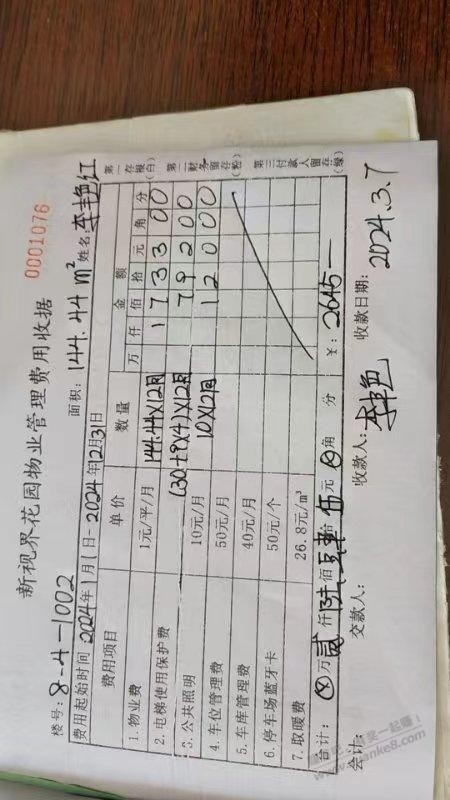 新视界花园物业管理费用收据 0001076
楼号: 8-4-1002 面积: 144.44 m² 姓名:
费用起始时间 2024年1月1日-2024年12月31日
费用项目 单价 数量 金额
万 仟 佰 拾 元 角 分
1. 物业费 1元/平/月 144.44X12月 1 7 3 3 0 0
2. 电梯使用保护费 (30+9X4)X12月 7 9 2 0 0
3. 公共照明 10元/月 10X12月 1 2 0 0 0
4. 车位管理费 50元/月
5. 车库管理费 40元/月
6. 停车场蓝牙卡 50元/个
7. 取暖费 26.8元/m³
合计: ⊗ 万 贰 仟 陆 佰 肆 拾 伍 元 ⊗ 角 分 ¥: 2645—
会计: 交款人: 收款人: 收款日期: 2024.3.7
第一存根(白)
第二财务留存(粉)
第三付款人留存(绿)